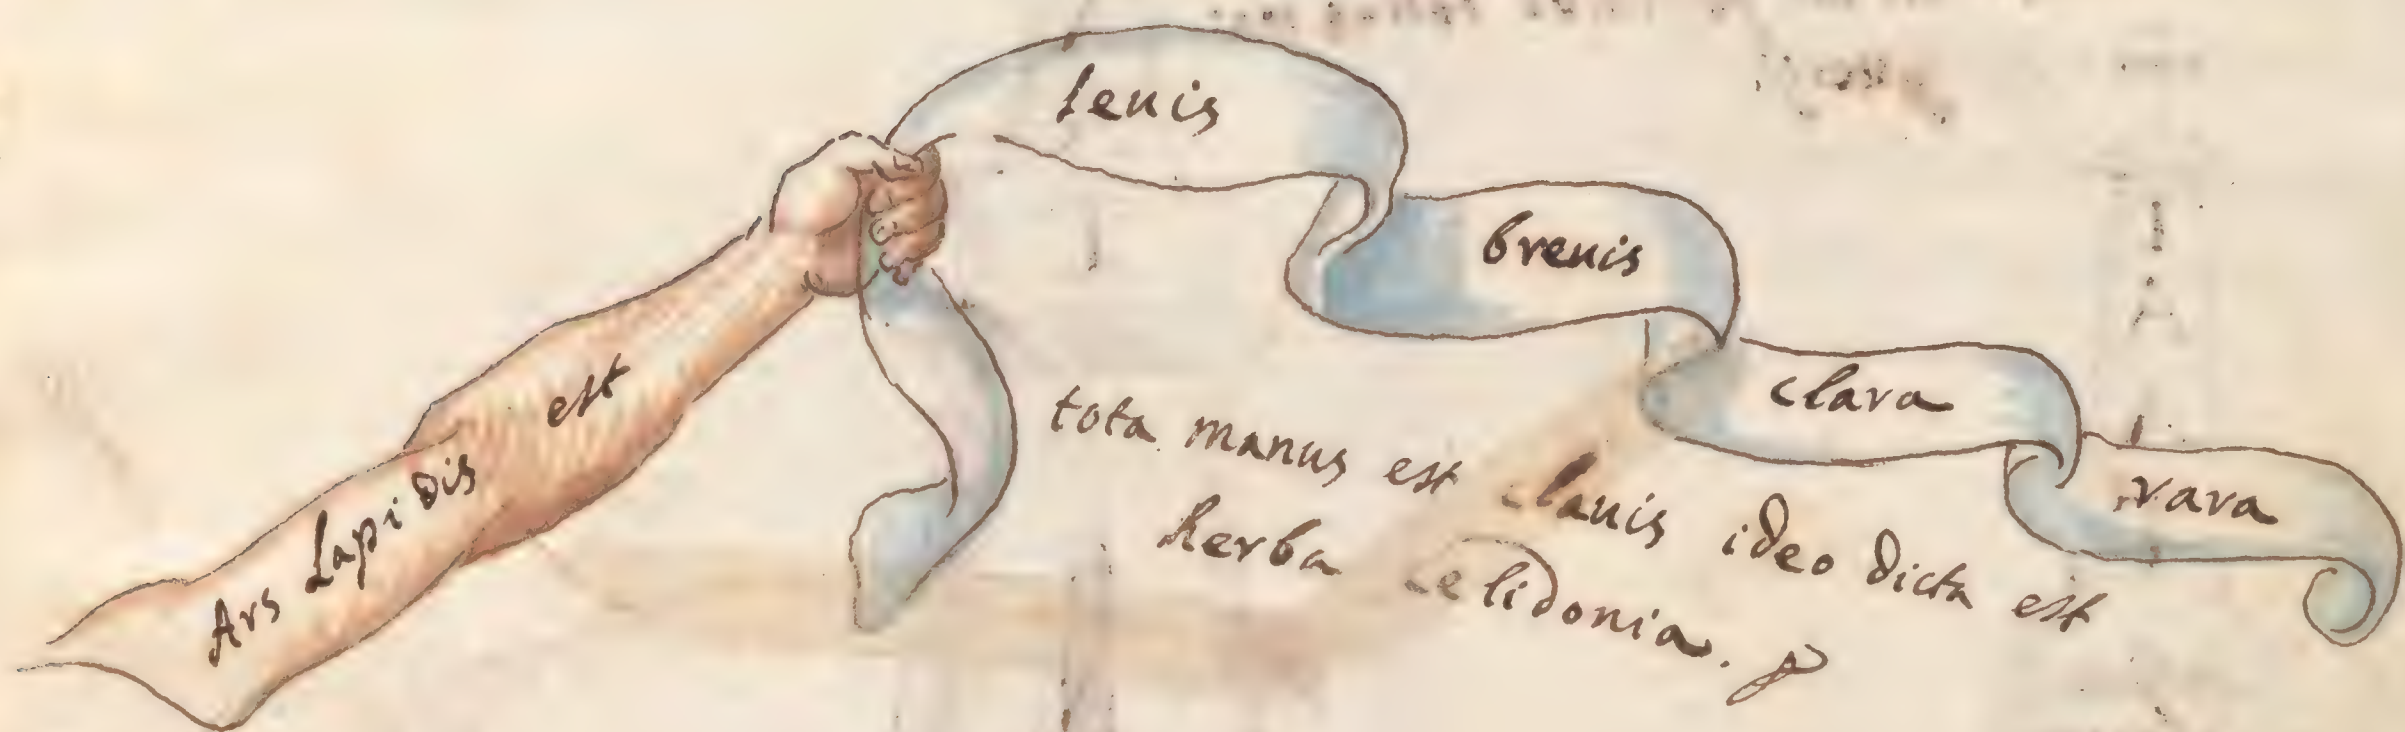 Ars Lapidis
est
leuis
breuis
clara
rara
tota manus est clauis ideo dicta est
herba Celidonia.